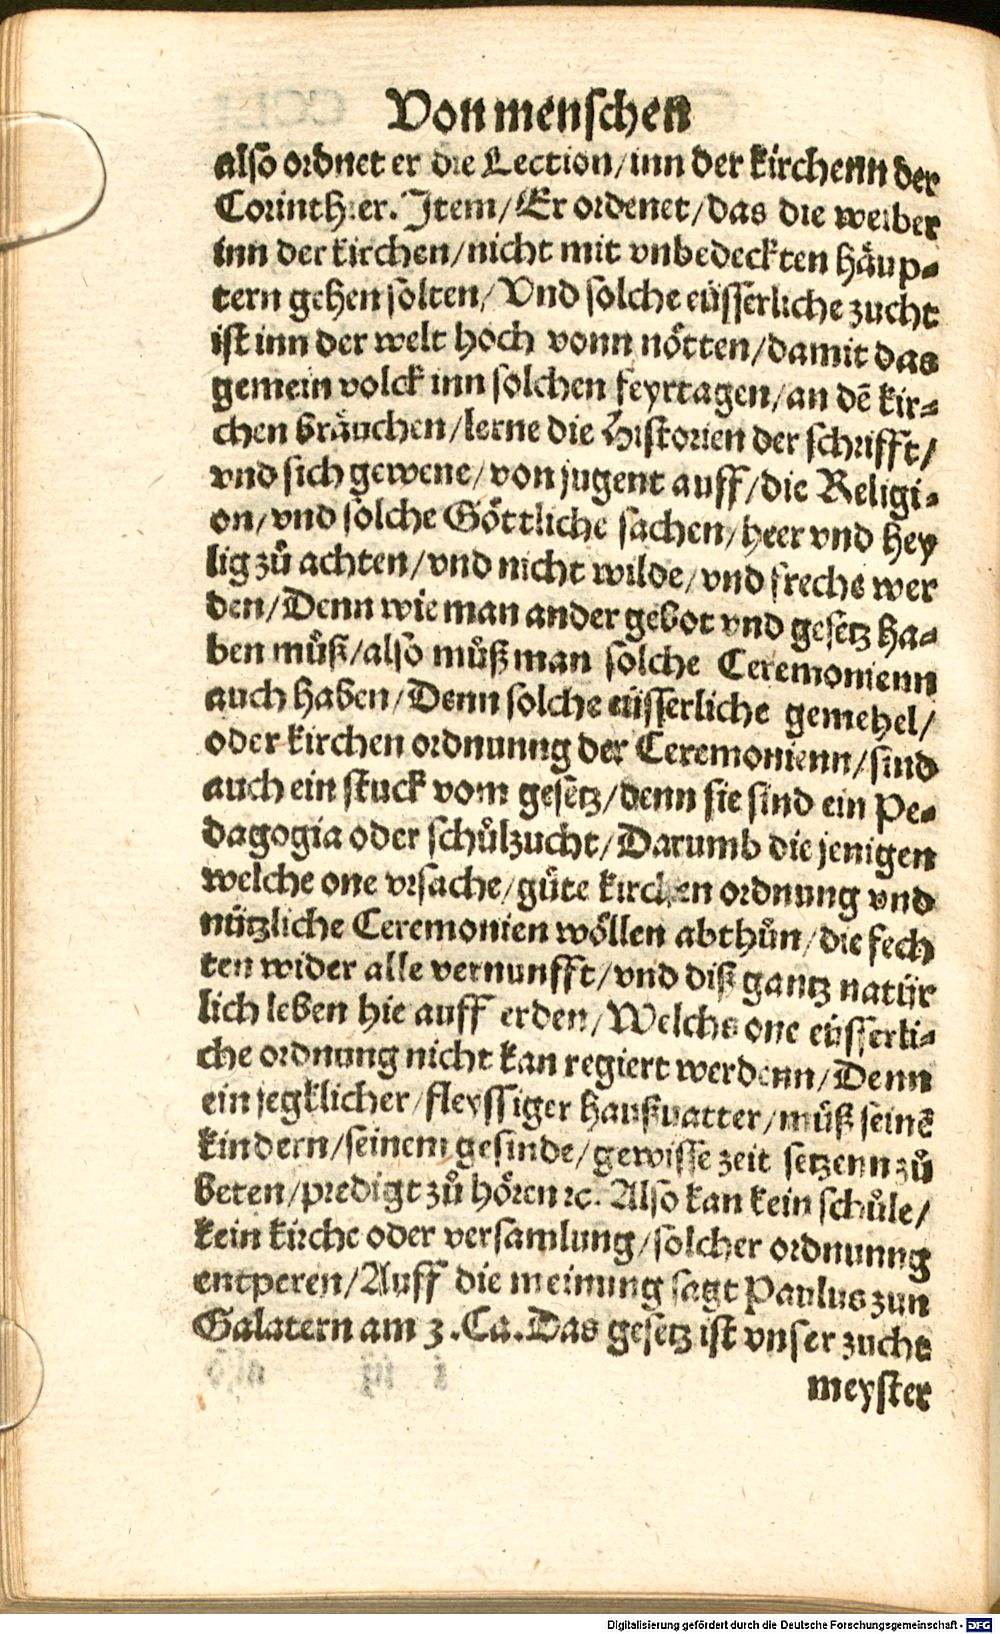 Von menschen
also ordnet er die Lection/inn der kirchenn der
Corinthier. Jtem/Er ordenet/das die weiber
inn der kirchen/nicht mit vnbedeckten häup⸗
tern gehen solten/Vnd solche eüsserliche zucht
ist inn der welt hoch vonn nötten/damit das
gemein volck inn solchen feyrtagen/an dē kir⸗
chen bräuchen/lerne die Historien der schrifft/
vnd sich gewene/von jugent auff/die Religi⸗
on/vnd solche Göttliche sachen/heer vnd hey
lig zů achten/vnd nicht wilde/vnd freche wer
den/Denn wie man ander gebot vnd gesetz ha⸗
ben můß/also můß man solche Ceremonienn
auch haben/Denn solche eüsserliche gemehel/
oder kirchen ordnunng der Ceremonienn/sind
auch ein stuck vom gesetz/denn sie sind ein Pe⸗
dagogia oder schůlzucht/Darumb die jenigen
welche one vrsache/gůte kirchen ordnung vnd
nützliche Ceremonien wöllen abthůn/die fech
ten wider alle vernunfft/vnd diß gantz natür
lich leben hie auff erden/Welchs one eüsserli⸗
che ordnung nicht kan regiert werdenn/Denn
ein jegklicher/fleyssiger haußuatter/můß seinē
kindern/seinem gesinde/gewisse zeit setzenn zů
beten/predigt zů hören ꝛc. Also kan kein schůle/
kein kirche oder versamlung/solcher ordnunng
entperen/Auff die meinung sagt Paulus zun
Galatern am 3.Ca.Das gesetz ist vnser zucht
meyster
Digitalisierung gefördert durch die Deutsche Forschungsgemeinschaft - DFG